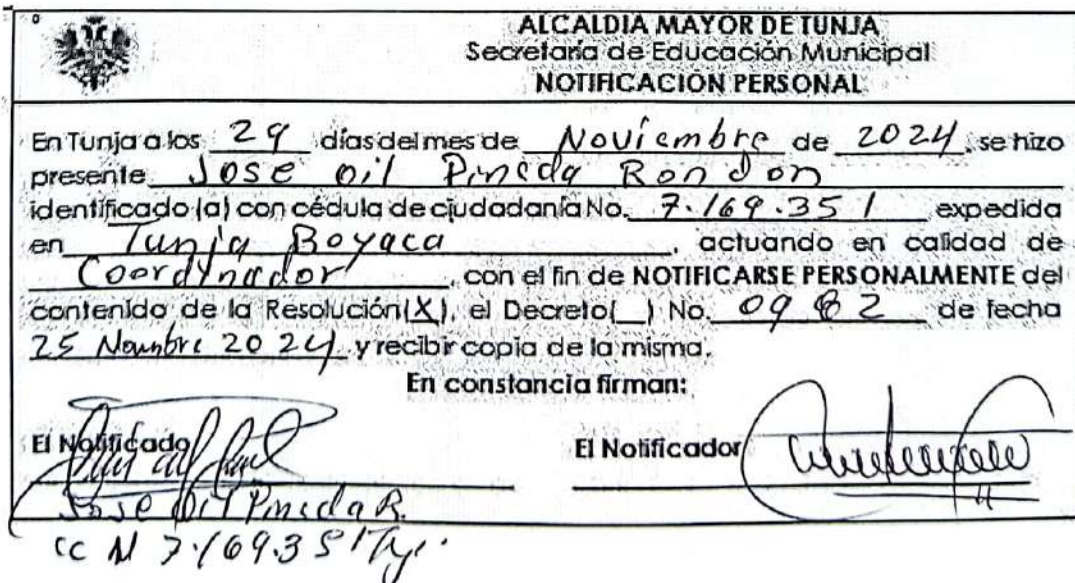 ALCALDIA MAYOR DE TUNJA
Secretaría de Educación Municipal
NOTIFICACIÓN PERSONAL
En Tunja a los 29 días del mes de Noviembre de 2024, se hizo
presente Jose Oil Pineda Rondon
identificado (a) con cédula de ciudadanía No. 7.169.351 expedida
en Tunja Boyaca, actuando en calidad de
Coordynador, con el fin de NOTIFICARSE PERSONALMENTE del
contenido de la Resolución(X), el Decreto(__) No. 0982 de fecha
25 Nounbre 2024 y recibir copia de la misma.
En constancia firman:
El Notificado
El Notificador
Jose Oil Pineda R.
CC N 7.169.351 Tyc.